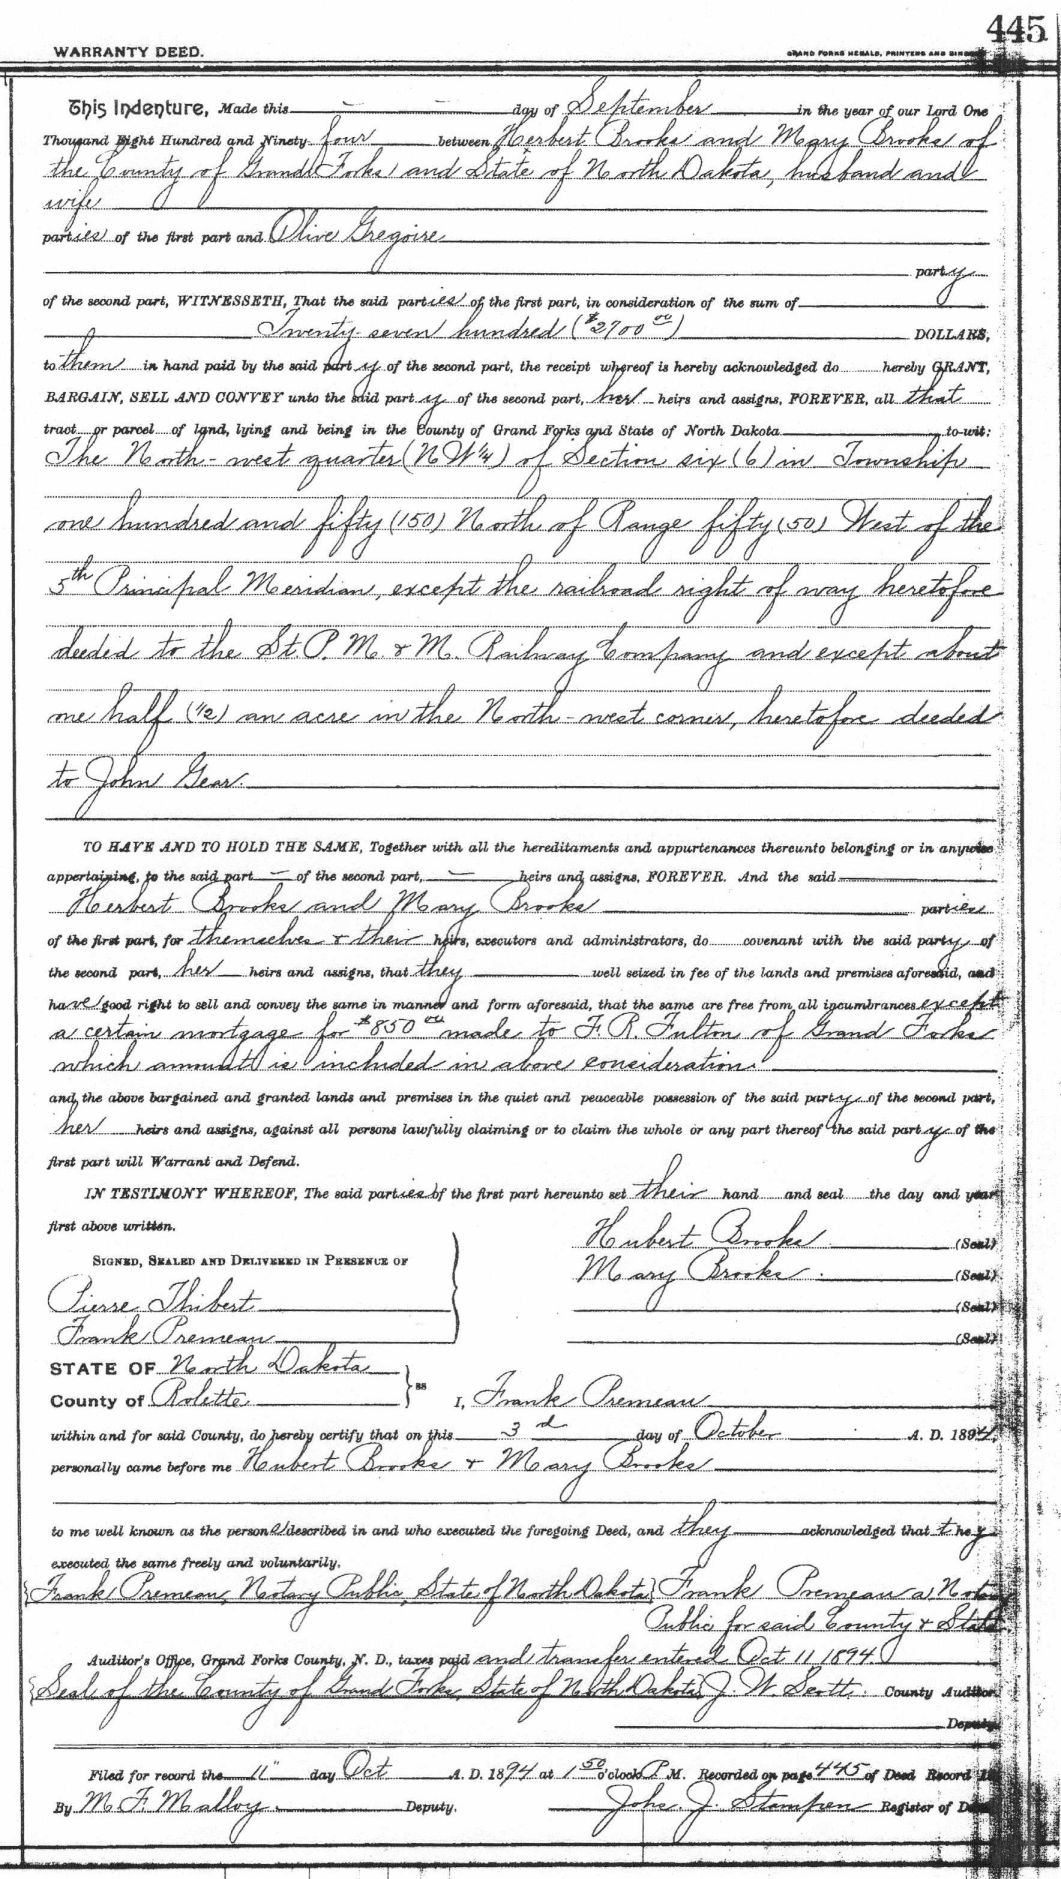 445
WARRANTY DEED.
GRAND FORKS HERALD, PRINTERS AND
This Indenture, Made this — — day of September in the year of our Lord One
Thousand Eight Hundred and Ninety four between Herbert Brooks and Mary Brooks of
the County of Grand Forks and State of North Dakota, husband and
wife
parties of the first part and Olive Gregoire
party
of the second part, WITNESSETH, That the said parties of the first part, in consideration of the sum of
Twenty seven hundred ($2700 00) DOLLARS,
to them in hand paid by the said party of the second part, the receipt whereof is hereby acknowledged do hereby GRANT,
BARGAIN, SELL AND CONVEY unto the said party of the second part, her heirs and assigns, FOREVER, all that
tract or parcel of land, lying and being in the County of Grand Forks and State of North Dakota to-wit:
The North-west quarter (NW¼) of Section six (6) in Township
one hundred and fifty (150) North of Range fifty (50) West of the
5th Principal Meridian, except the railroad right of way heretofore
deeded to the St. P. M. & M. Railway Company and except about
one half (1/2) an acre in the North-west corner, heretofore deeded
to John Gear.
TO HAVE AND TO HOLD THE SAME, Together with all the hereditaments and appurtenances thereunto belonging or in anywise
appertaining, to the said part — of the second part, — heirs and assigns, FOREVER. And the said
Herbert Brooks and Mary Brooks parties
of the first part, for themselves & their heirs, executors and administrators, do covenant with the said party of
the second part, her heirs and assigns, that they well seized in fee of the lands and premises aforesaid, and
have good right to sell and convey the same in manner and form aforesaid, that the same are free from all incumbrances except
a certain mortgage for $850 00 made to F. R. Fulton of Grand Forks
which amount is included in above consideration.
and the above bargained and granted lands and premises in the quiet and peaceable possession of the said party of the second part,
her heirs and assigns, against all persons lawfully claiming or to claim the whole or any part thereof the said party of the
first part will Warrant and Defend.
IN TESTIMONY WHEREOF, The said parties of the first part hereunto set their hand and seal the day and year
first above written.
Hubert Brooks (Seal)
SIGNED, SEALED AND DELIVERED IN PRESENCE OF
Mary Brooks (Seal)
Pierre Thibert (Seal)
Frank Premeau (Seal)
STATE OF North Dakota
County of Rolette } ss I, Frank Premeau
within and for said County, do hereby certify that on this 3d day of October A. D. 1894,
personally came before me Hubert Brooks & Mary Brooks
to me well known as the persons described in and who executed the foregoing Deed, and they acknowledged that they
executed the same freely and voluntarily.
{Frank Premeau, Notary Public, State of North Dakota} Frank Premeau a Notary
Public for said County & State
Auditor's Office, Grand Forks County, N. D., taxes paid and transfer entered Oct 11 1894.
{Seal of the County of Grand Forks, State of North Dakota} J. W. Scott. County Auditor
Deputy
Filed for record the 11" day Oct A. D. 1894 at 1 50 o'clock P. M. Recorded on page 445 of Deed Record
By M. F. Malloy. Deputy. John J. Stampen Register of Deeds